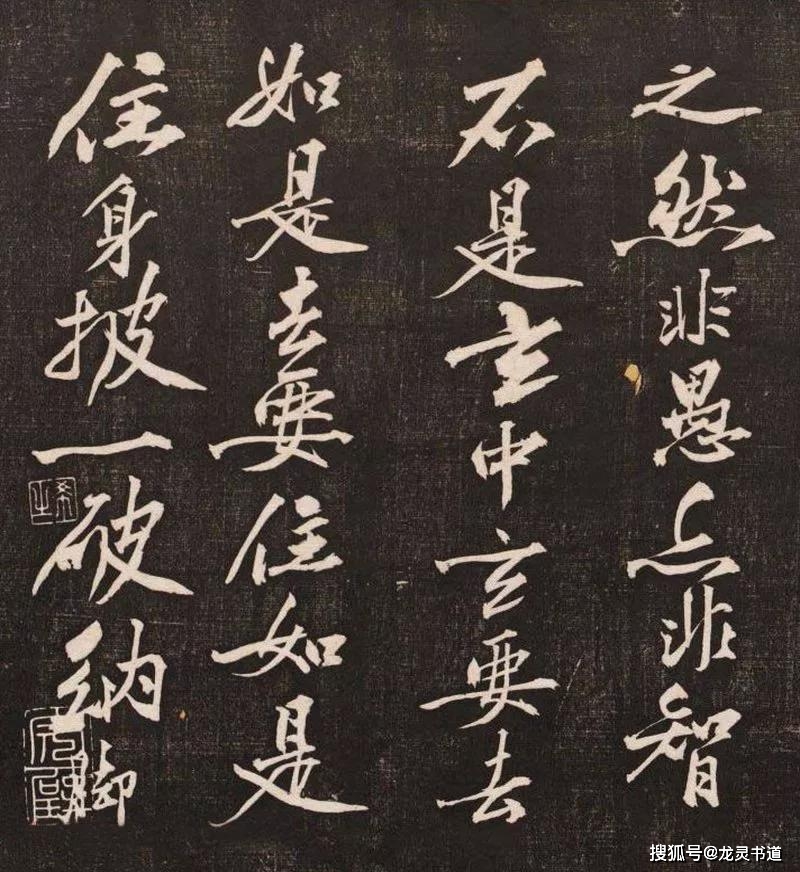 之然非愚亦非智
不是玄中玄要去
如是去要住如是
住身披一破衲脚
搜狐号@龙灵书道